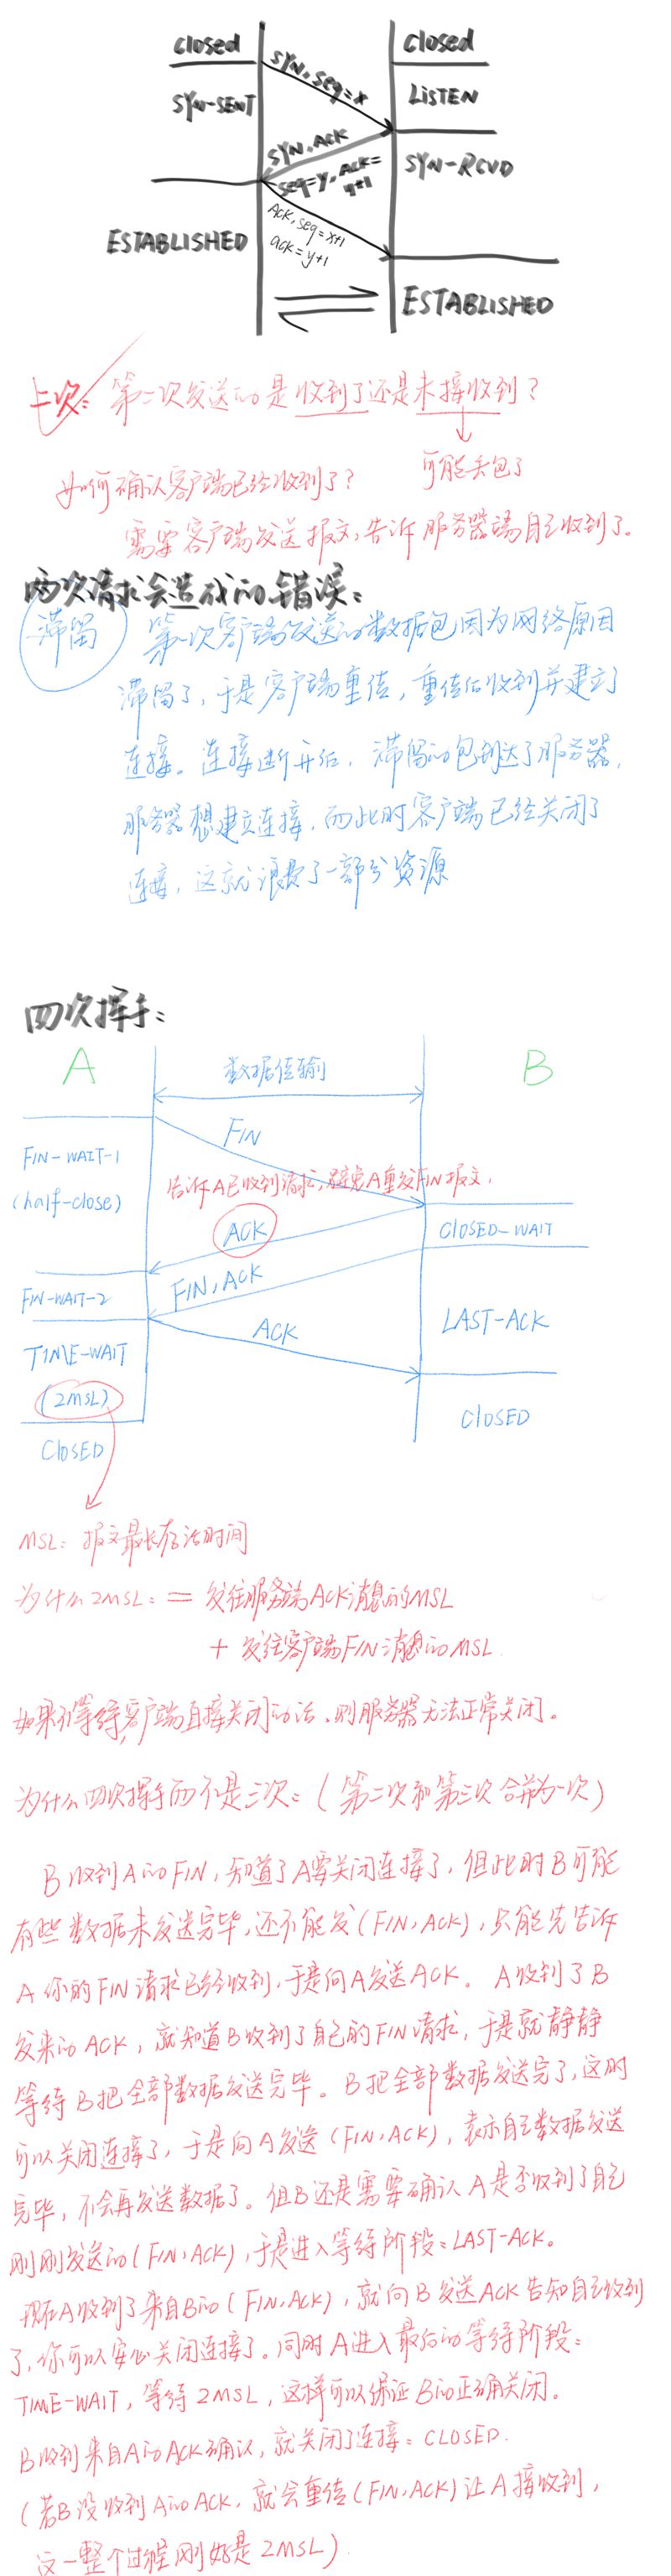 closed
closed
SYN-SENT
SYN, seq=x
LISTEN
SYN, ACK
seq=y, ACK=
SYN-RCVD
ACK, seq=x+1
ack=y+1
ESTABLISHED
ESTABLISHED
第二次发送的是收到了还是未接收到?
可能丢包了
如何确认客户端已经收到了?
需要客户端发送报文,告诉服务器端自己收到了。
两次请求会造成的错误:
滞留
第一次客户端发送的数据包因为网络原因
滞留了,于是客户端重传,重传后收到并建立了
连接。连接断开后,滞留的包到达了服务器,
服务器想建立连接,而此时客户端已经关闭了
连接,这就浪费了一部分资源
四次挥手:
A
B
数据传输
FIN
FIN-WAIT-1
(half-close)
告诉A已收到请求,避免A重发FIN报文.
ACK
CLOSED-WAIT
FIN, ACK
FIN-WAIT-2
ACK
LAST-ACK
TIME-WAIT
(2MSL)
CLOSED
CLOSED
MSL: 报文最长存活时间
为什么2MSL: = 发往服务端ACK消息的MSL
+ 发往客户端FIN消息的MSL.
如果不等待,客户端直接关闭的话,则服务器无法正常关闭。
为什么四次挥手而不是三次:(第二次和第三次合并为一次)
B收到A的FIN,知道了A要关闭连接了,但此时B可能
有些数据未发送完毕,还不能发(FIN,ACK),只能先告诉
A 你的FIN请求已经收到,于是向A发送ACK。A收到了B
发来的ACK,就知道B收到了自己的FIN请求,于是就静静
等待B把全部数据发送完毕。B把全部数据发送完了,这时
可以关闭连接了,于是向A发送(FIN,ACK),表示自己数据发送
完毕,不会再发送数据了。但B还是需要确认A是否收到了自己
刚刚发送的(FIN,ACK),于是进入等待阶段:LAST-ACK。
现在A收到了来自B的(FIN,ACK),就向B发送ACK告知自己收到
了,你可以安心关闭连接了。同时A进入最后的等待阶段:
TIME-WAIT,等待2MSL,这样可以保证B的正确关闭。
B收到来自A的ACK确认,就关闭了连接:CLOSED.
(若B没收到A的ACK,就会重传(FIN,ACK)让A接收到,
这一整个过程刚好是2MSL)